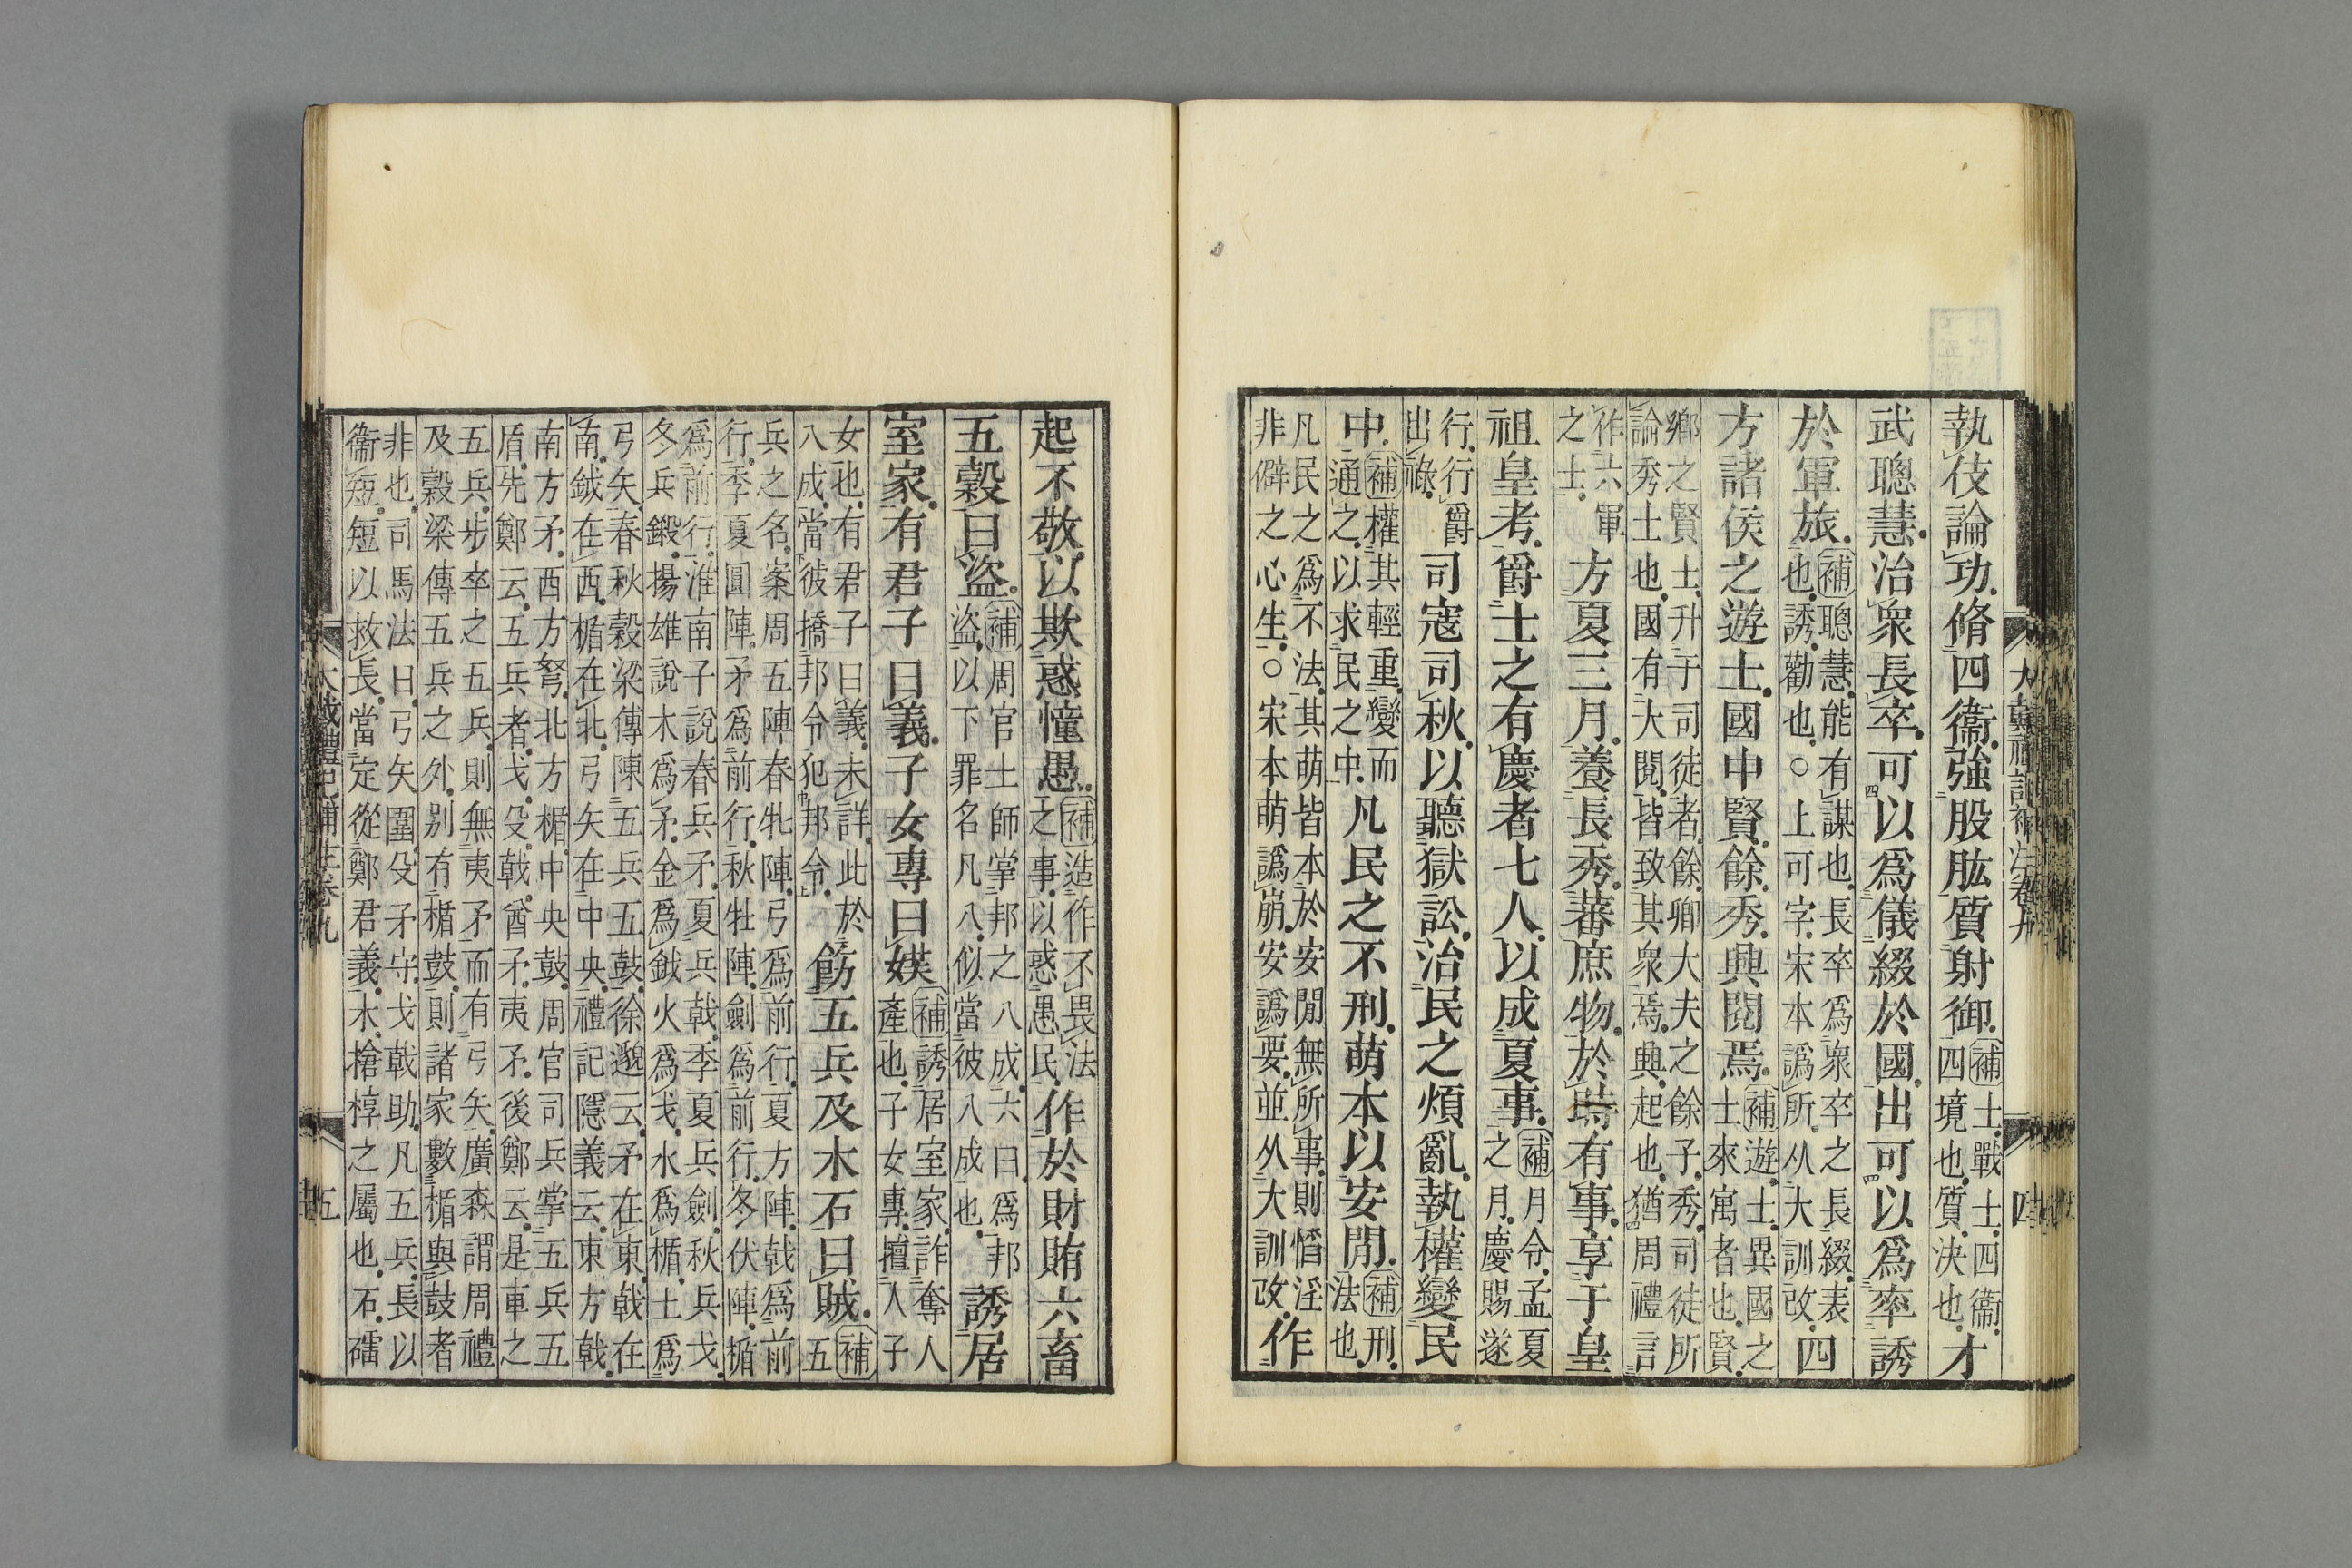 大戴禮記補注卷九 四
執伎論功脩四衞強股肱質射御補士戰士四衞四境也質決也才
武聰慧治衆長卒可以爲儀綴於國出可以爲率誘
於軍旅補聰慧能有謀也長卒爲衆卒之長綴表也誘勸也○上可字宋本譌所从大訓改四
方諸侯之遊士國中賢餘秀興閱焉補遊士異國之士來寓者也賢
鄉之賢士升于司徒者餘卿大夫之餘子秀司徒所論秀士也國有大閱皆致其衆焉興起也猶周禮言
作六軍之士方夏三月養長秀蕃庶物於時有事享于皇
祖皇考爵士之有慶者七人以成夏事補月令孟夏之月慶賜遂
行行爵出祿司寇司秋以聽獄訟治民之煩亂執權變民
中補權其輕重變而通之以求民之中凡民之不刑萌本以安閒補刑法也
凡民之爲不法其萌皆本於安閒無所事則慆淫非僻之心生○宋本萌譌崩安譌要並从大訓改作
起不敬以欺惑憧愚補造作不畏法之事以惑愚民作於財賄六畜
五穀曰盜補周官士師掌邦之八成六曰爲邦盜以下罪名凡八似當彼八成也誘居
室家有君子曰義子女專曰媖補誘居室家詐奪人產也子女專擅入子
女也有君子曰義未詳此於八成當彼撟邦令犯邦令飭五兵及木石曰賊補五
兵之名案周五陣春牝陣弓爲前行夏方陣戟爲前行季夏圓陣矛爲前行秋牡陣劍爲前行冬伏陣楯
爲前行淮南子說春兵矛夏兵戟季夏兵劍秋兵戈冬兵鍛揚雄說木爲矛金爲鉞火爲戈水爲楯土爲
弓矢春秋穀梁傳陳五兵五鼓徐邈云矛在東戟在南鉞在西楯在北弓矢在中央禮記隱義云東方戟
南方矛西方弩北方楯中央鼓周官司兵掌五兵五盾先鄭云五兵者戈殳戟酋矛夷矛後鄭云是車之
五兵步卒之五兵則無夷矛而有弓矢廣森謂周禮及穀梁傳五兵之外別有楯鼓則諸家數楯與鼓者
非也司馬法曰弓矢圍殳矛守戈戟助凡五兵長以衞短短以救長當定從鄭君義木槍椁之屬也石礌
大戴禮記補注卷九 五